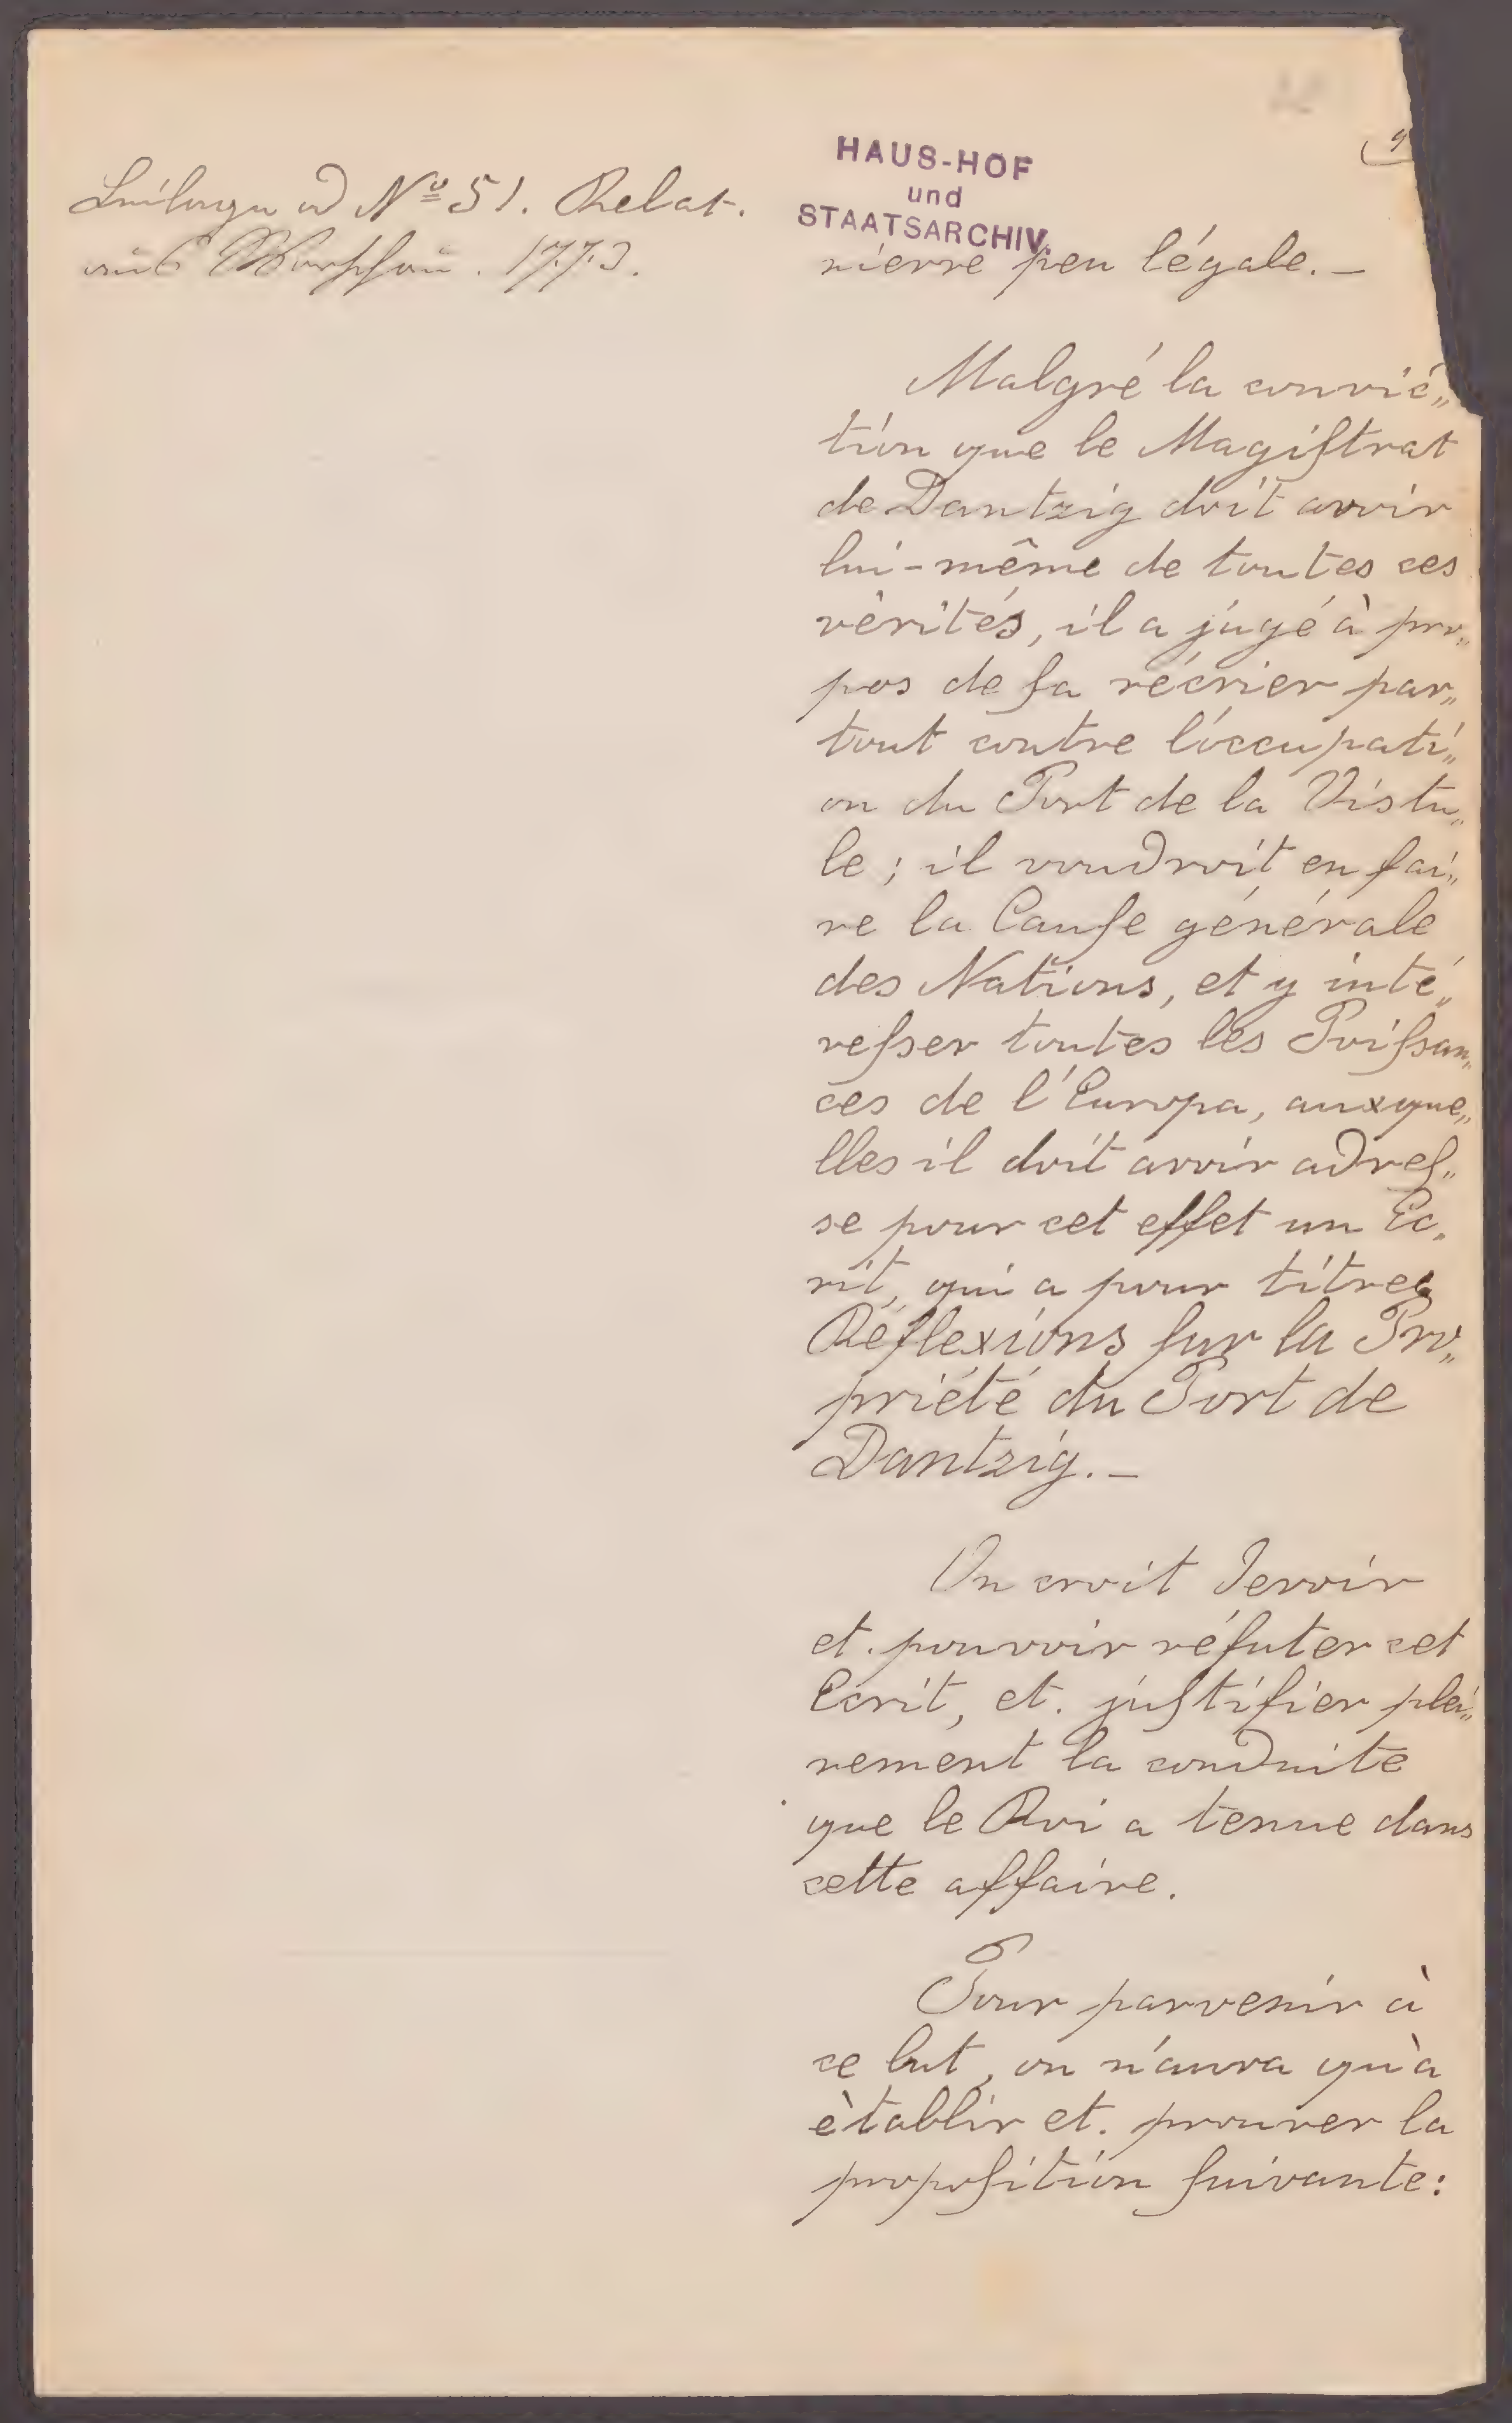 9
HAUS-HOF
und
STAATSARCHIV.
Beilage ad Nº 51. Relat.
aus Warschau. 1773.
nierre peu légale. —
Malgré la convic„
tion que le Magiſtrat
de Dantzig doit avoir
lui-même de toutes ces
vérités, il a jugé à pro„
pos de ſa récrier par„
tout contre l'occupati„
on du Port de la Vistu„
le; il voudroit en fai„
re la Cauſe générale
des Nations, et y inté„
reſser toutes les Puiſsan„
ces de l'Europa, auxque„
lles il doit avoir adreſ„
se pour cet effet un Ec„
rit, qui a pour titre:
Réflexions ſur la Pro„
priété du Port de
Dantzig. —
On croit devoir
et. pouvoir réfuter cet
Ecrit, et. juſtifier plei„
nement la conduite
que le Roi a tenue dans
cette affaire.
Pour parvenir à
ce but, on n'aura qu'à
ètablir et. prouver la
propoſition ſuivante: